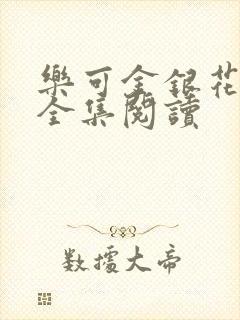 樂可金銀花
全集閱讀
數據大帝